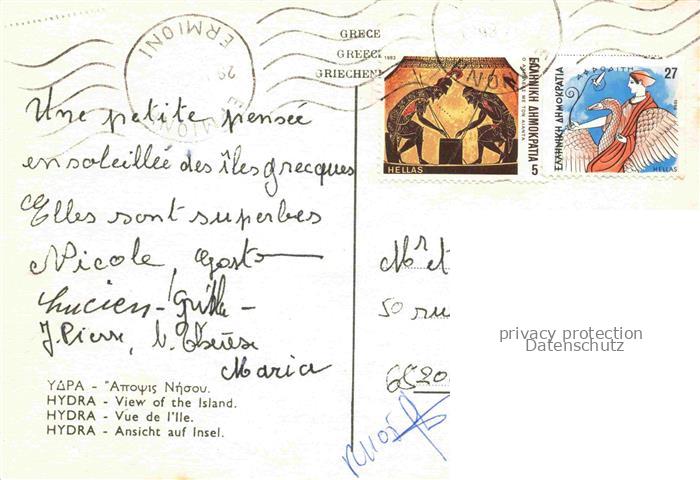 ERMIONI
ERMIONI
GRECE
GREECE
GRIECHENL
1983
ΕΛΛΗΝΙΚΗ ΔΗΜΟΚΡΑΤΙΑ
HELLAS
5
ΑΦΡΟΔΙΤΗ
27
ΕΛΛΗΝΙΚΗ ΔΗΜΟΚΡΑΤΙΑ
HELLAS
Une petite pensée
ensoleillée des îles grecques
Elles sont superbes
Nicole,
Lucien -
J. Pierre, M. Thérèse
Maria
Mr et
50 ru
6520
privacy protection
Datenschutz
ΥΔΡΑ - Ἄποψις Νήσου.
HYDRA - View of the Island.
HYDRA - Vue de l'Ile.
HYDRA - Ansicht auf Insel.